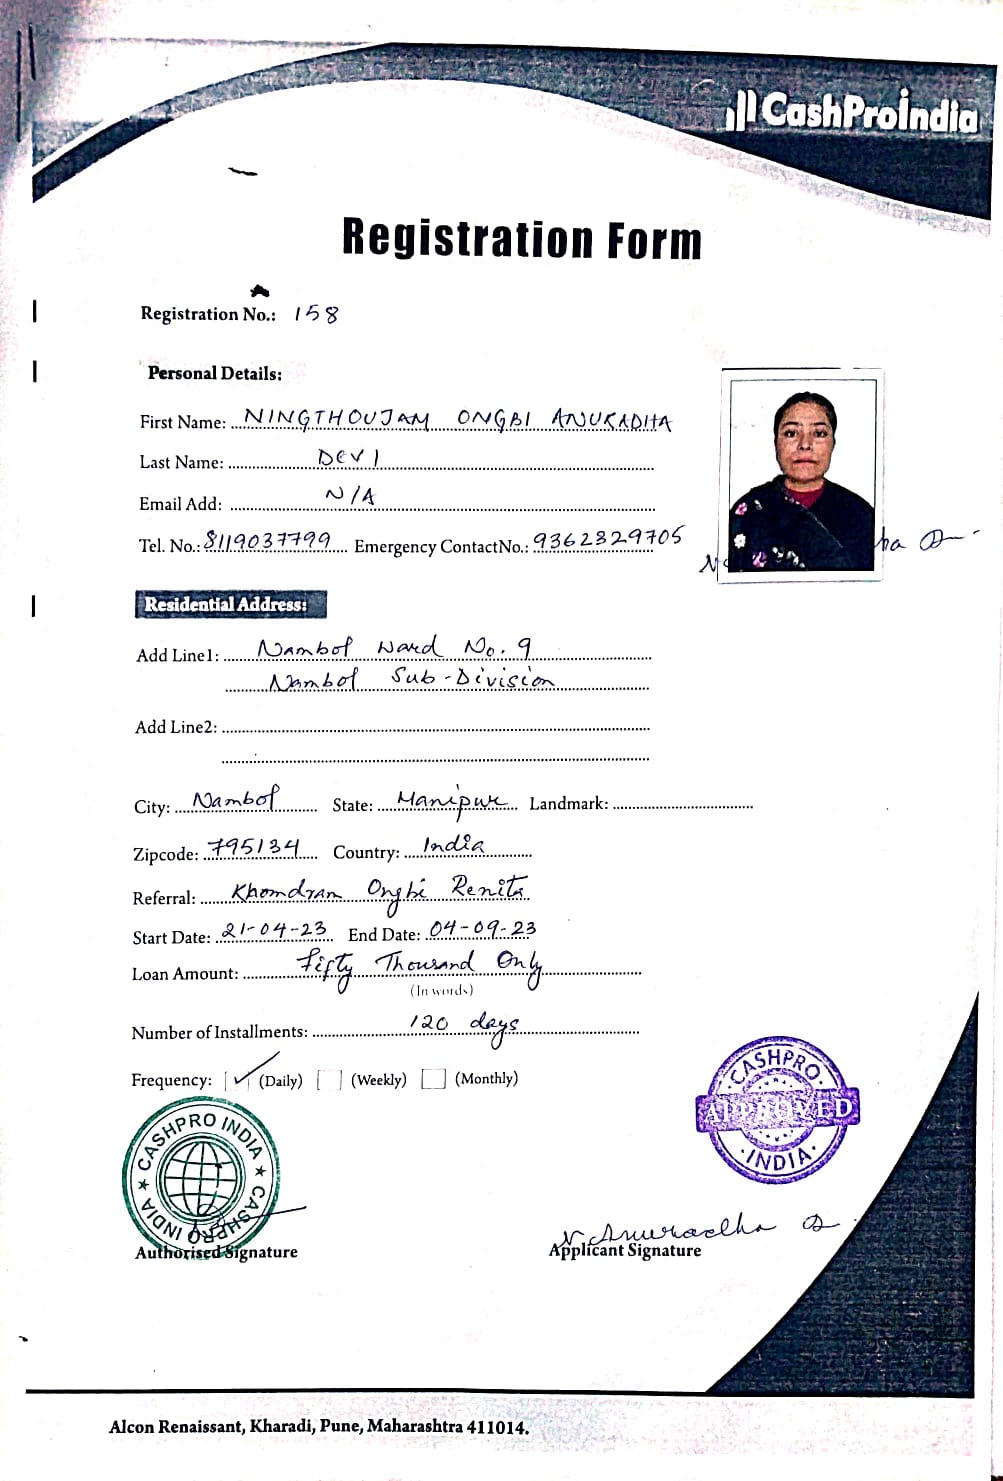 CashProIndia
Registration Form
Registration No.: 158
Personal Details:
First Name: NINGTHOUJAM ONGBI ANURADHA
Last Name: DEVI
Email Add: N/A
Tel. No.: 8119037799 Emergency ContactNo.: 9362329705
Residential Address:
Add Line1: Nambol Ward No. 9
Nambol Sub-Division
Add Line2:
City: Nambol State: Manipur Landmark:
Zipcode: 795134 Country: India
Referral: Khomdram Ongbi Renita
Start Date: 21-04-23 End Date: 04-09-23
Loan Amount: Fifty Thousand Only
(In words)
Number of Installments: 120 days
Frequency: (Daily) (Weekly) (Monthly)
CASHPRO INDIA ★ CASHPRO INDIA ★
CASHPRO
APPROVED
INDIA
N. Anuradha D
Authorised Signature
Applicant Signature
Alcon Renaissant, Kharadi, Pune, Maharashtra 411014.